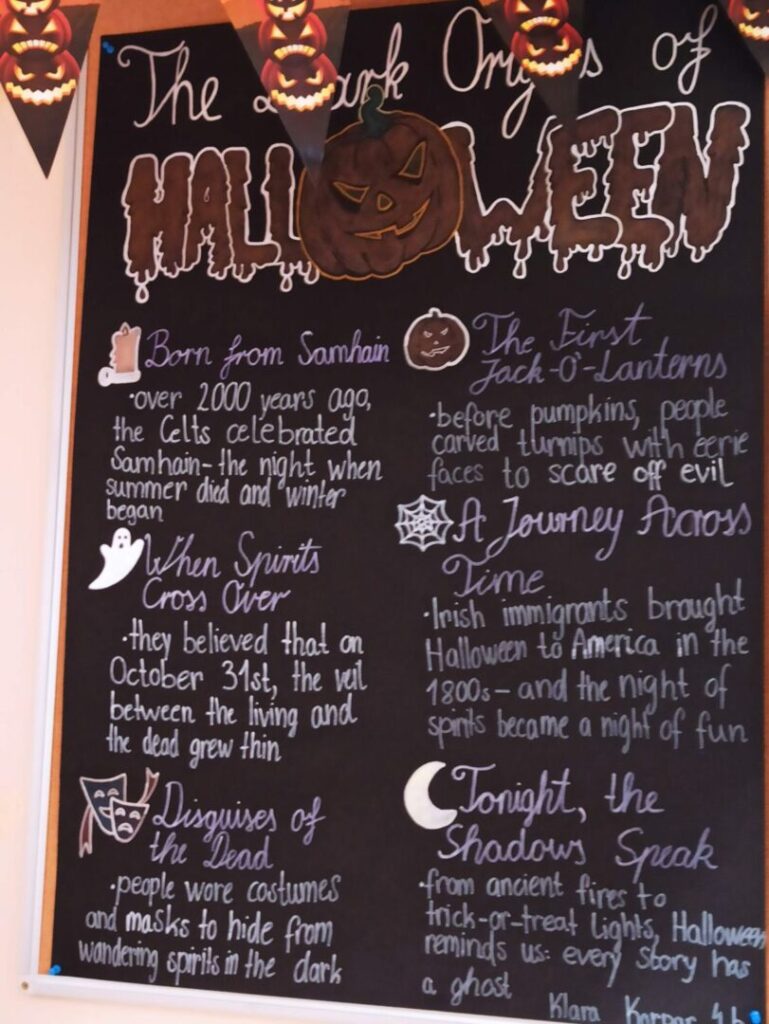 The Dark Origins of
HALLOWEEN
Born from Samhain
•over 2000 years ago,
the Celts celebrated
Samhain-the night when
summer died and winter
began
When Spirits
Cross Over
•they believed that on
October 31st, the veil
between the living and
the dead grew thin
Disguises of
the Dead
•people wore costumes
and masks to hide from
wandering spirits in the dark
The First
Jack-O'-Lanterns
•before pumpkins, people
carved turnips with eerie
faces to scare off evil
A Journey Across
Time
•Irish immigrants brought
Halloween to America in the
1800s-and the night of
spirits became a night of fun
Tonight, the
Shadows Speak
•from ancient fires to
trick-or-treat lights, Halloween
reminds us: every story has
a ghost
Klara